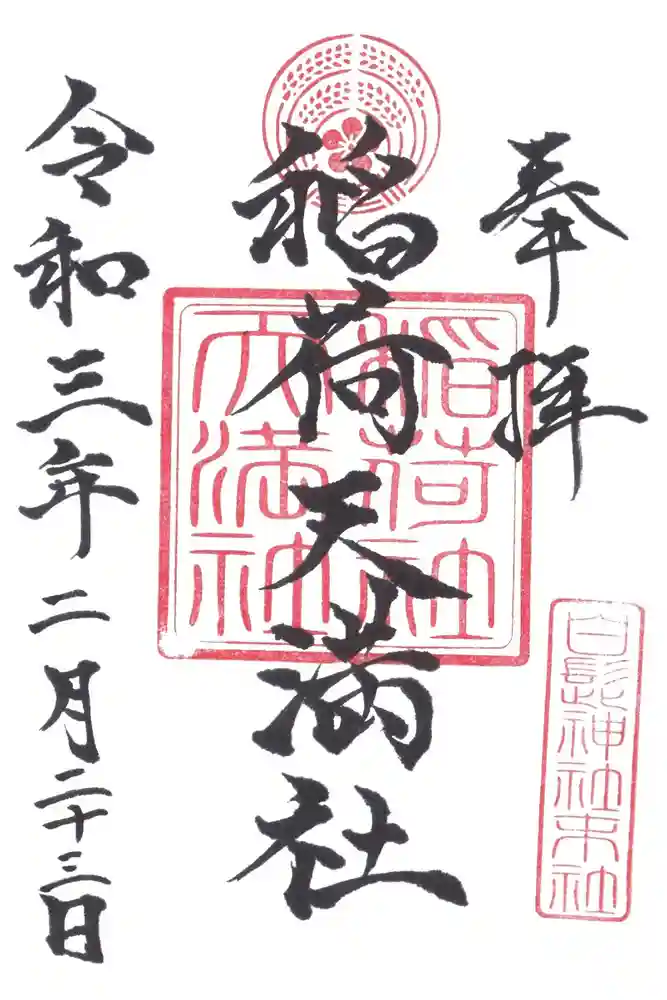 奉拝
白髭神社末社
稲荷天満社
稲荷社
天満社
令和三年二月二十三日